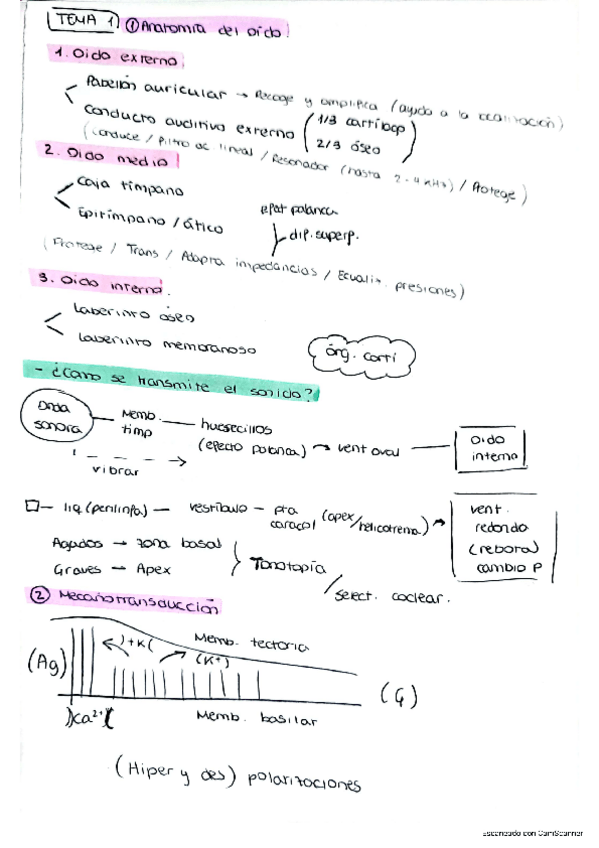 TEMA 1 ① Anatomía del oído.
1. Oido externo:
Pabellón auricular → Recoge y amplifica (ayuda a la localización)
Conducto auditivo externo (1/3 cartílago
2/3 óseo)
(Conduce / Filtro ac lineal / Resonador (hasta 2-4 kHz) / Protege)
2. Oido medio:
Caja tímpano
Epitímpano / ático
efat palanca
dif. superf.
(Protege / Trans / Adapta impedancias / Ecualiz. presiones)
3. Oido interno:
Laberinto óseo
Laberinto membranoso
órg. Corti
- ¿Cómo se transmite el sonido?
Onda sonora — Memb. timp — huesecillos (efecto palanca) → vent oval — oido interno
vibrar
liq. (perilinfa) — vestíbulo — pta caracol (apex/helicotrema) → vent. redonda (rebota) cambio P
Agudos → zona basal
Graves — Apex
Tonotopía
/ select. coclear.
② Mecanotransducción
Memb. tectoria
)+K(
(K+)
(Ag)
(G)
)Ca²⁺(
Memb. basilar
(Hiper y des) polarizaciones
Escaneado con CamScanner